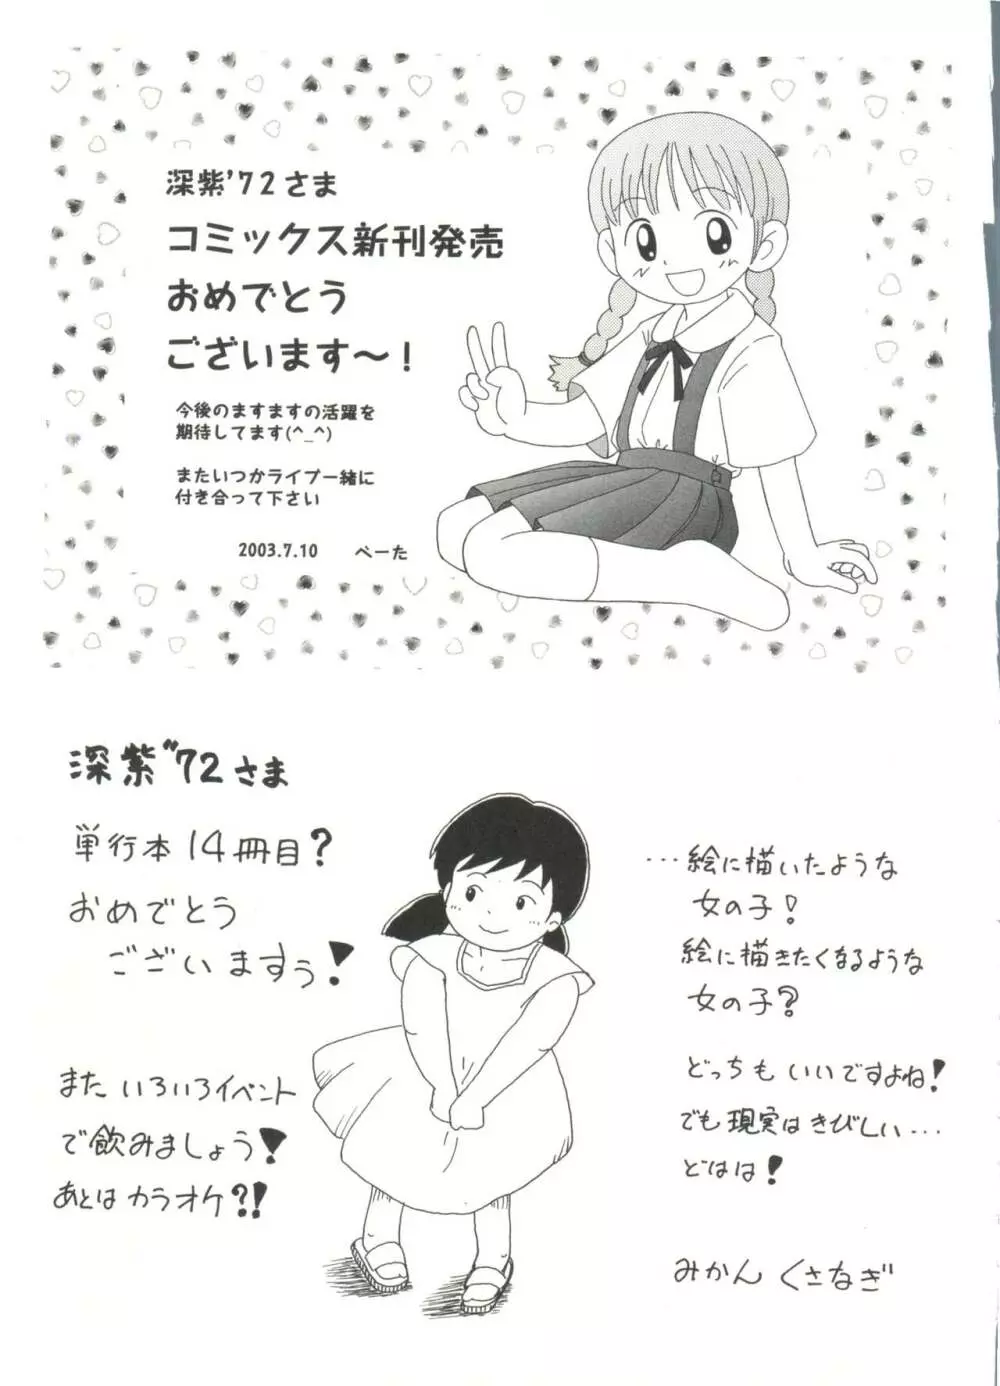 深紫'72さま
コミックス新刊発売
おめでとう
ございます〜！
今後のますますの活躍を
期待してます(^_^)
またいつかライブ一緒に
付き合って下さい
2003.7.10　ぺーた
深紫"72さま
単行本14冊目？
おめでとう
ございますぅ！
また いろいろイベント
で飲みましょう！
あとは カラオケ?!
…絵に描いたような
女の子！
絵に描きたくなるような
女の子？
どっちも いいですよね！
でも現実はきびしい…
どはは！
みかん くさなぎ